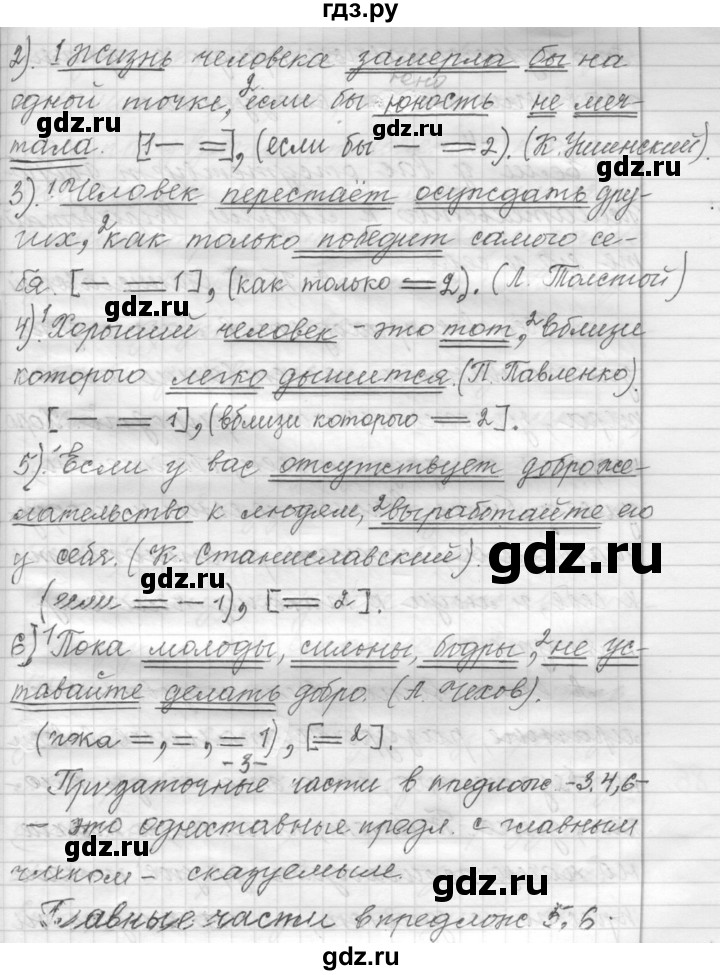 гдз.ру
2). 1 Жизнь человека замерла бы на
одной точке, 2 если бы юность не меч-
тала. [1 — =], (если бы — = 2). (К. Ушинский).
3). 1 Человек перестаёт осуждать дру-
гих, 2 как только победит самого се-
бя. [— = 1], (как только = 2). (Л. Толстой)
4). 1 Хороший человек – это тот, 2 вблизи
которого легко дышится. (П. Павленко).
[— = 1], (вблизи которого = 2].
5). 1 Если у вас отсутствует доброже-
лательство к людям, 2 выработайте его
у себя. (К. Станиславский).
(если = – 1), [= 2].
6) 1 Пока молоды, сильны, бодры, 2 не ус-
тавайте делать добро. (А. Чехов).
(пока =, =, = 1), [= 2].
-3-
Придаточные части в предлож. -3.4,6-
– это односоставные предл. с главным
членом – сказуемые.
Главные части в предлож 5, 6.
gdz.ru
gdz.ru
gdz.ru
gdz.ru
gdz.ru
gdz.ru
gdz.ru
gdz.ru
gdz.ru
gdz.ru
gdz.ru
gdz.ru